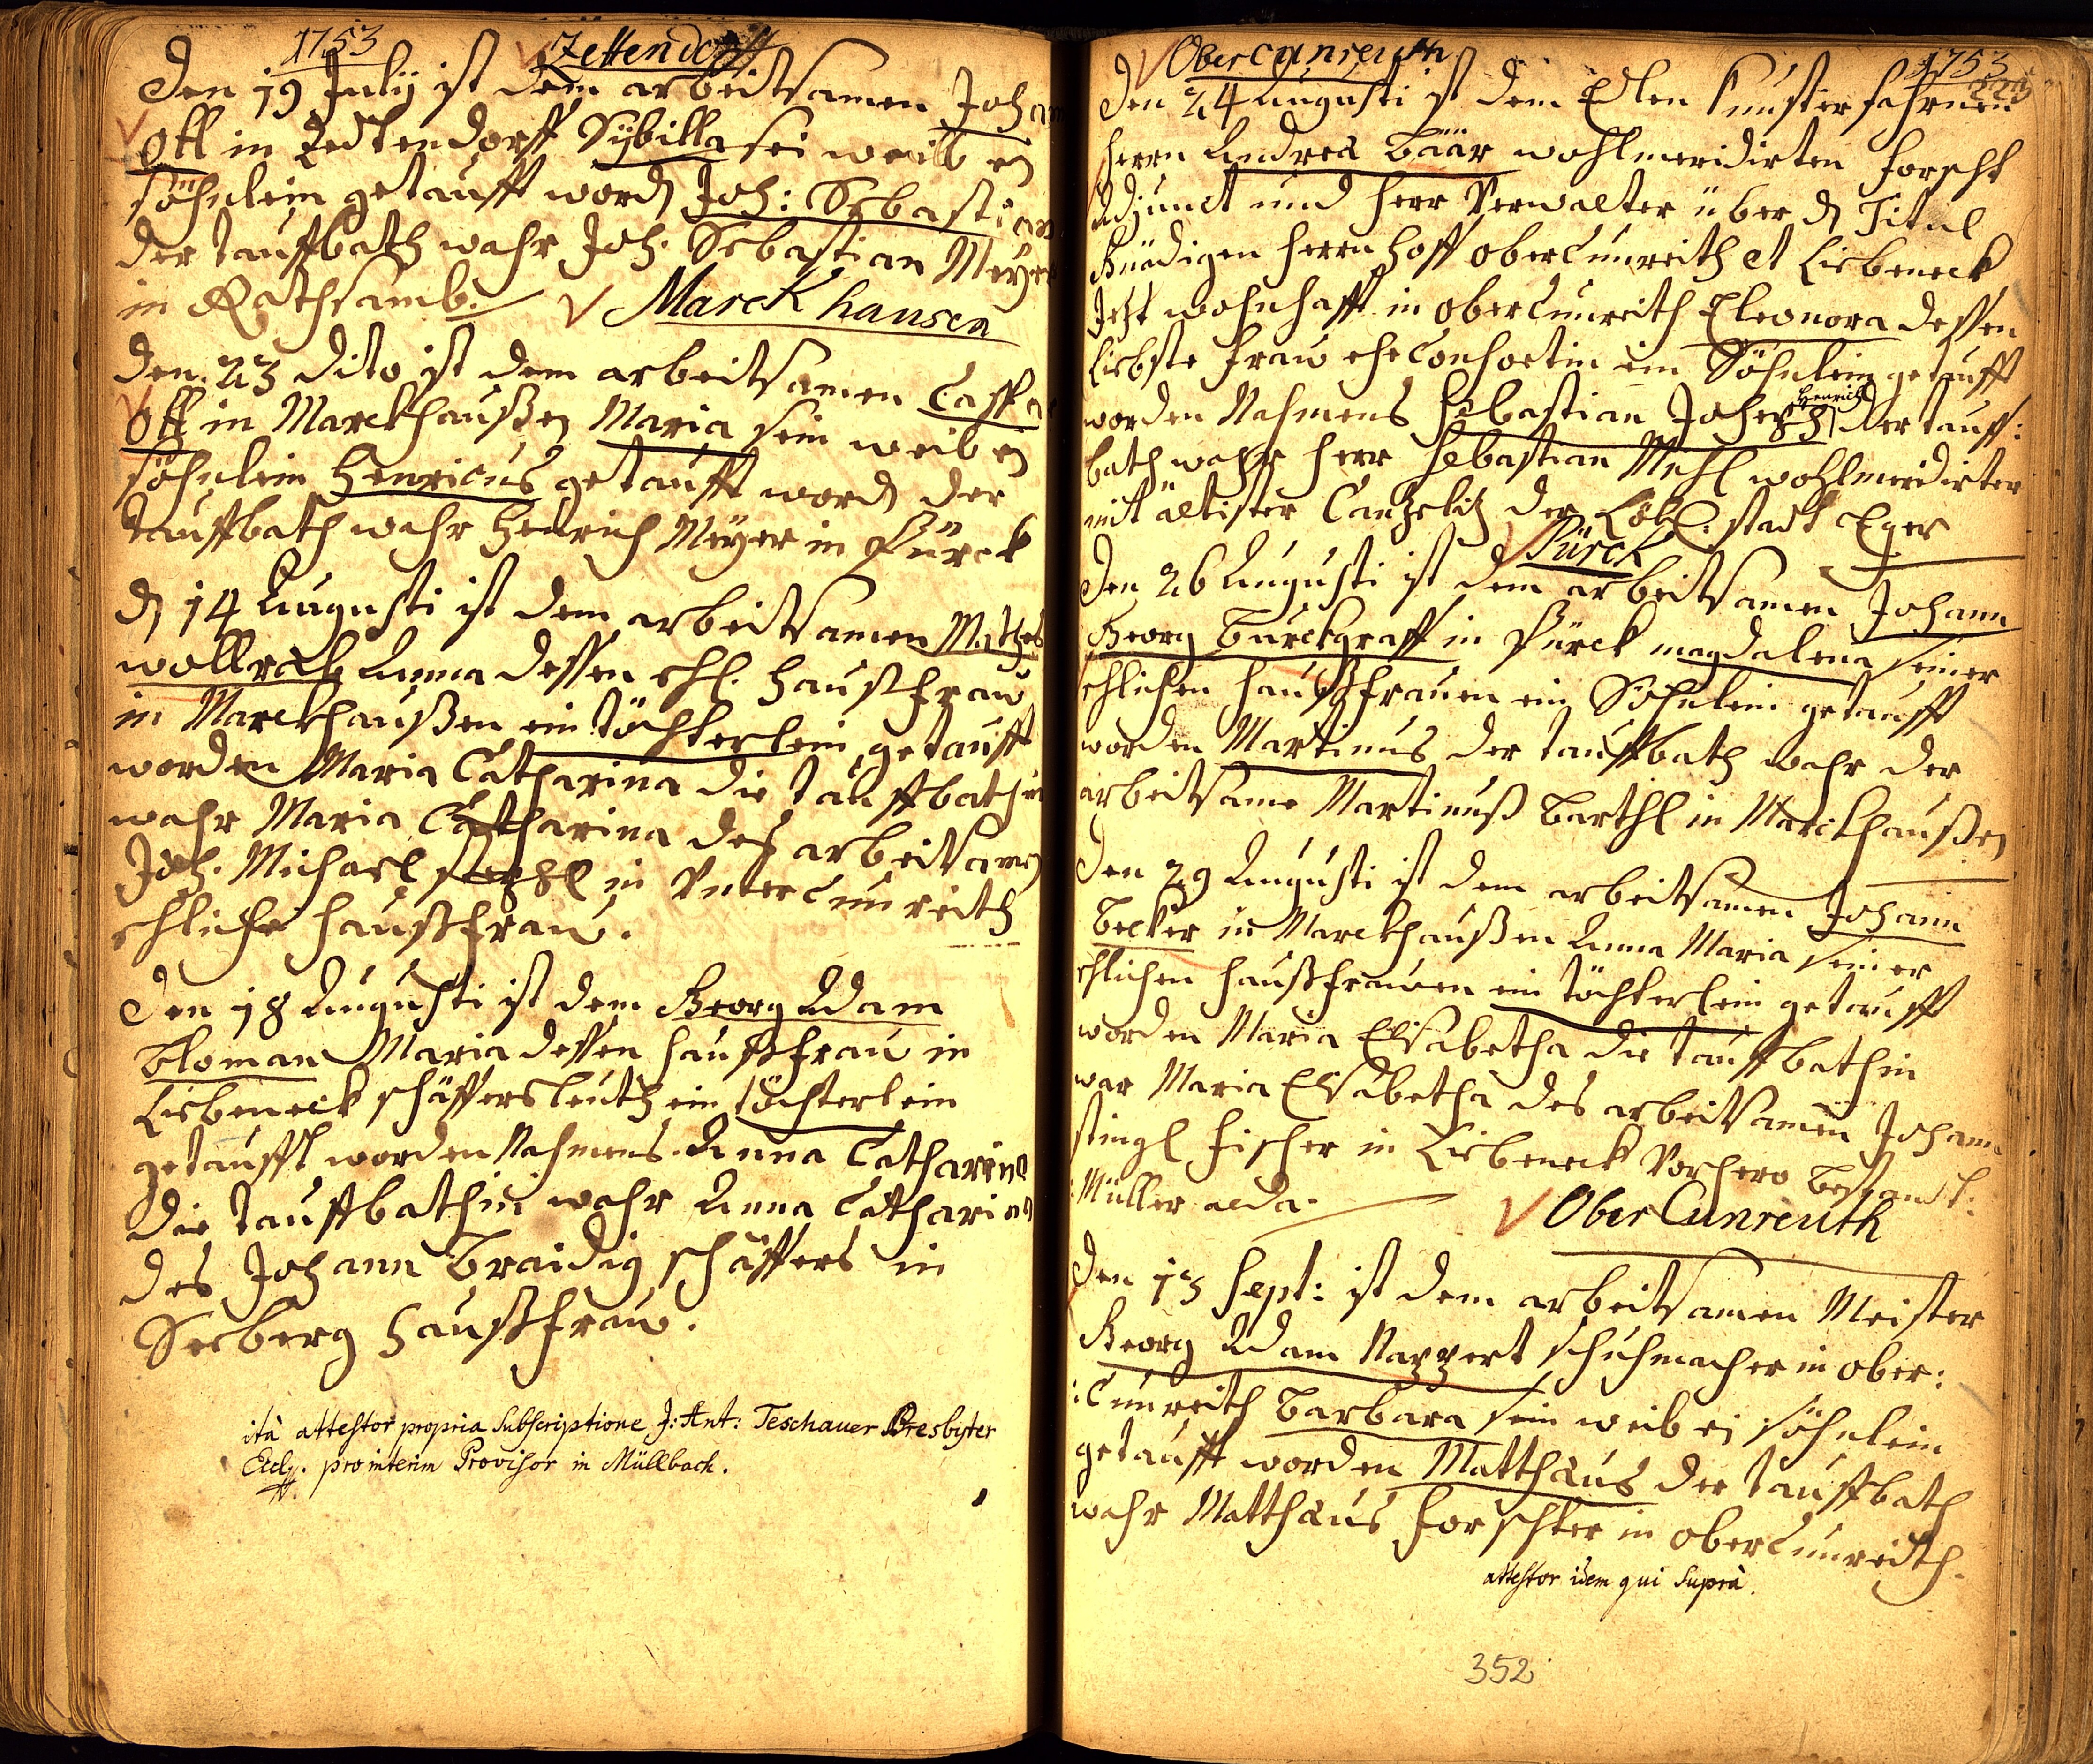 1753
Zettendorff
Den 19 July ist dem arbeitsamen Johan
Ott in Zedtendorff Sÿbilla sei weib ein
söhnlein getaufft word Joh: Sebastian
der tauffbath wahr Joh. Sebastian Meÿer
in Rathsamb.
Marckhausen
den 23 dito ist dem arbeitsamen Caspar
Ott in Marckhaußen Maria sein weib ein
söhnlein Henricus getaufft word der
tauffbath wahr Henrich Meÿer in Pürck
d 14 Augusti ist dem arbeitsamen Mathes
wollrab Anna dessen ehl. haußfrau
in Marckhaußen ein töchterlein getaufft
worden Maria Catharina die tauffbathin
wahr Maria Catharina des arbeitsamen
Joh. Michael in Untercunreith
ehliche haußfrau.
Den 18 Augusti ist dem Georg Adam
bloman Maria dessen haußfrau in
Liebeneck schäffersleuth ein töchterlein
getaufft worden Nahmens Anna Catharina
die tauffbathin wahr Anna Catharina
des Johann Braidig schäffers in
Seeberg haußfrau.
ità attestor propria subscriptione J: Ant: Teschauer Presbyter
Eccl. pro interim Provisor in Müllbach.
Obercunreuth
1753
223
Den 24 Augusti ist dem Edlen Kunsterfahrnen
herrn Andrea Bäär wohlmeridirten Forscht
Adjunct und herr Verwalter über d Titul
Gnädigen herrn hoff obercunreith et Liebeneck
Jetzt wohnhafft in obercunreith Eleonora dessen
Liebste frau eheConsortin ein Söhnlein getaufft
worden Nahmens Sebastian Joseph Henrich der tauff:
bath wahr herr Sebastian Mihl wohlmeridirter
mit ältister Cantzelist der Löbl: stadt Eger
Pürck
Den 26 Augusti ist dem arbeitsamen Johann
Georg Burckgraff in Pürck magdalena seiner
ehlichen haußfrauen ein Söhnlein getaufft
worden Martinus der tauffbath wahr der
arbeitsame Martinuß Barthl in Marckhaußen
Den 29 Augusti ist dem arbeitsamen Johann
Becker in Marckhaußen Anna Maria seiner
ehlichen haußfrauen ein töchterlein getaufft
worden Maria Elisabetha die tauffbathin
war Maria Elisabetha des arbeitsamen Johann
stingl fischer in Liebeneck Vorhero bestandt:
:Müller alda.
OberCunreuth
Den 13 Sept: ist dem arbeitsamen Meister
Georg Adam Rappert schuhmacher in ober:
:Cunreith Barbara sein weib ein söhnlein
getaufft worden Matthäus der tauffbath
wahr Matthäus forschter in obercunreith.
attestor idem qui suprà.
352